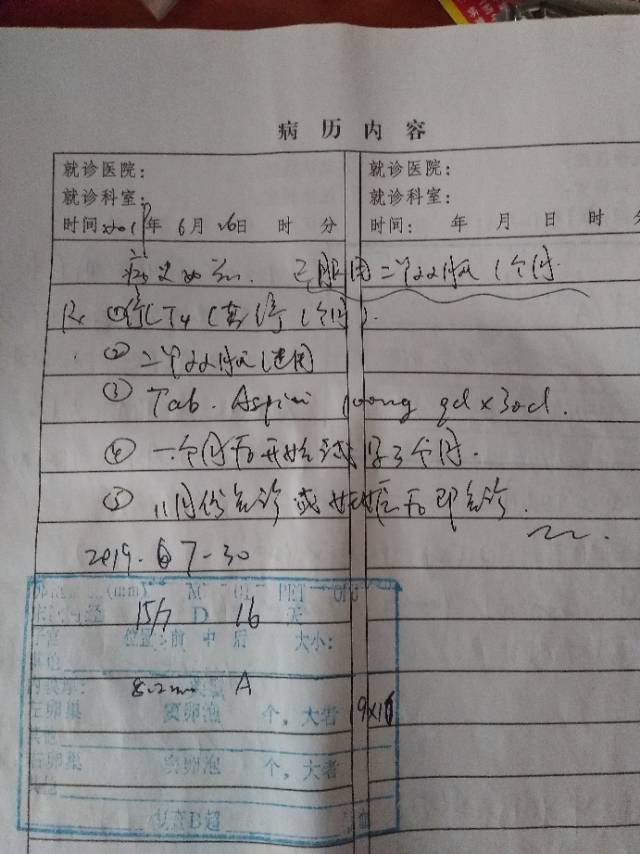 病历内容
就诊医院:
就诊科室:
时间 2019年 6月 26日 时 分
就诊医院:
就诊科室:
时间: 年 月 日 时
病史如前. 已服用二甲双胍1个月.
Rx ①停LT4(暂停1个月).
② 二甲双胍
③ Tab. Aspirin 100mg qd x 30d.
④ 一个月后开始试孕3个月.
⑤ 11月份复诊或妊娠后即复诊.
2019. 7-30
(mm)
15/7 D 16 天
子宫 位置:前 中 后 大小:
8.2mm A
左卵巢 窦卵泡 个, 大者 19x16
右卵巢 窦卵泡 个, 大者
B超